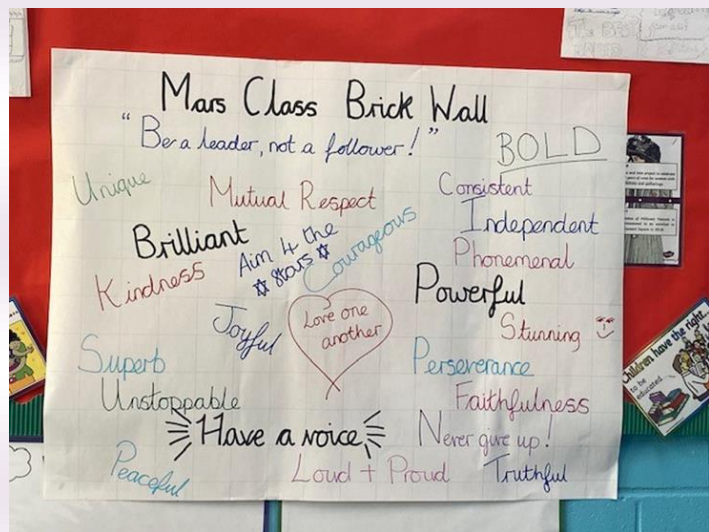 Mars Class Brick Wall
"Be a leader, not a follower!"
BOLD
Unique
Mutual Respect
Consistent
Independent
Brilliant
Aim 4 the
stars
Courageous
Phonemenal
Kindness
Powerful
Joyful
Love one
another
Stunning
Superb
Perseverance
Unstoppable
Faithfulness
Have a voice
Never give up!
Peaceful
Loud + Proud
Truthful
Children have the right
to be
educated